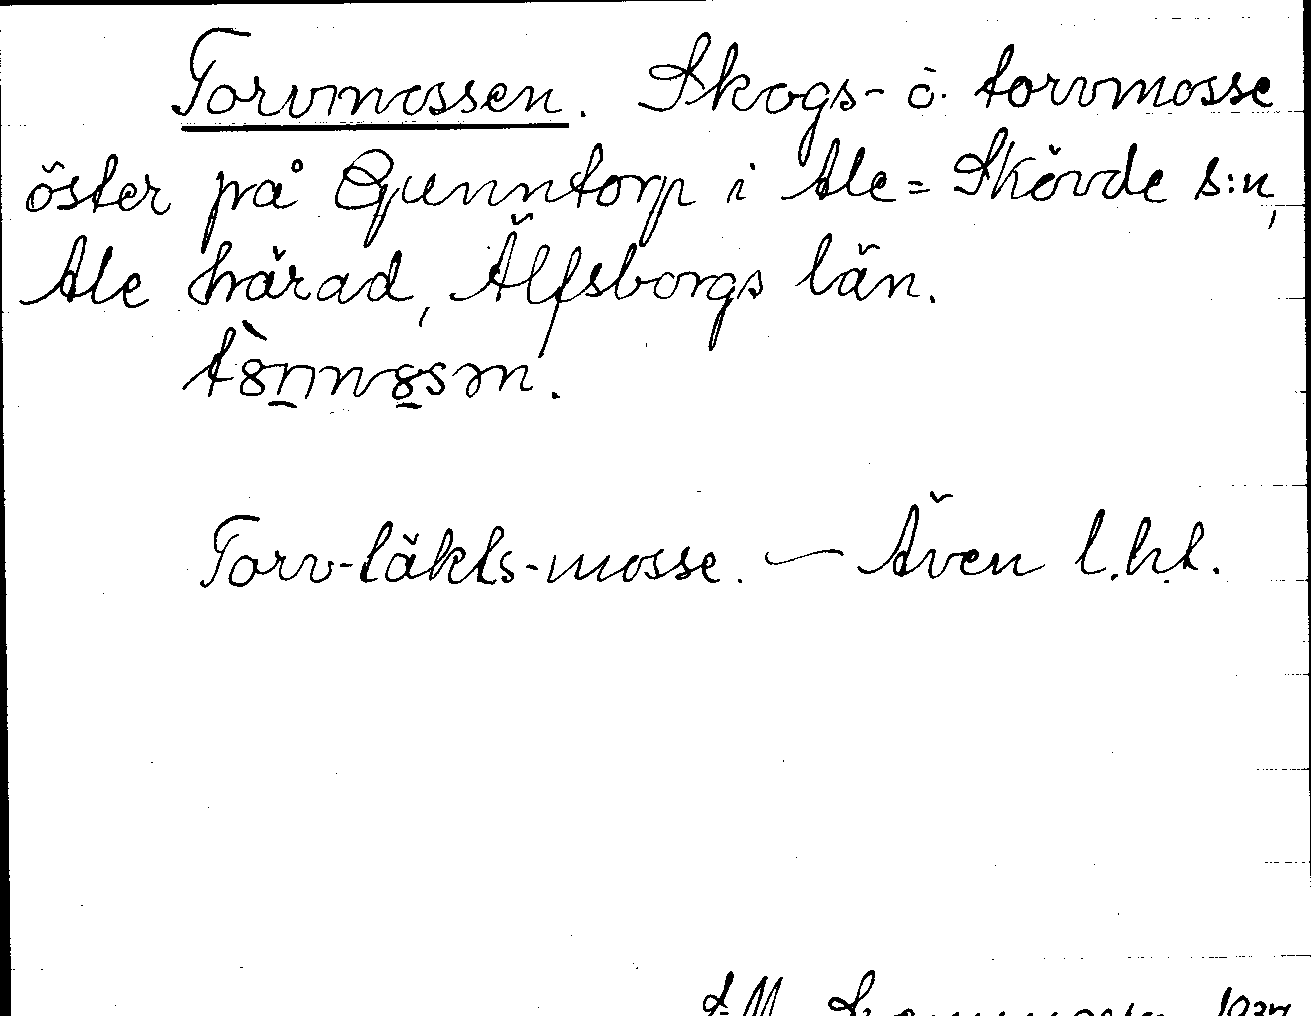 Torvmossen. Skogs- o. torvmosse
öster på Gunntorp i Ale=Skövde s:n,
Ale härad, Älfsborgs län.
Torv-täkts-mosse. — Även l.h.l.